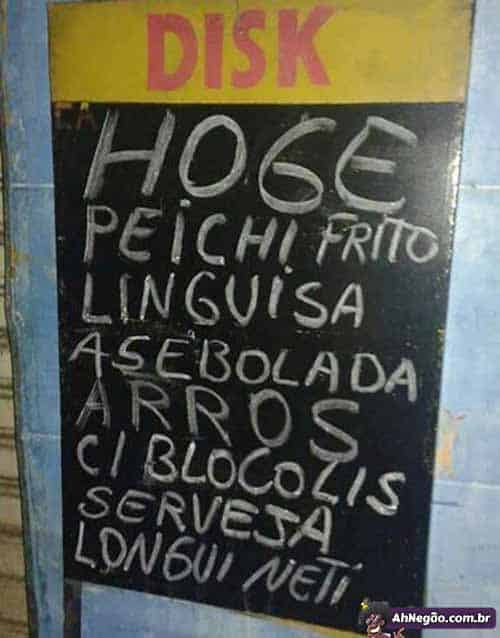 DISK
HOGE
PEiCHi FRiTO
LINGUiSA
ASEBOLADA
ARROS
C/ BLOCOLIS
SERVEJA
LONGUI NETi
AhNegão.com.br